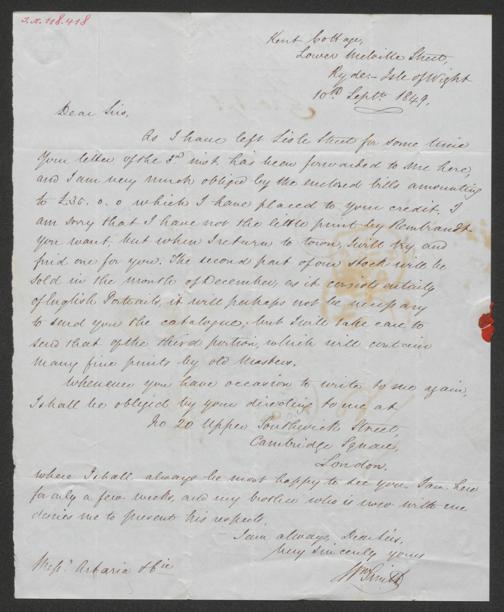 I.N. 118.418
Kent Cottage,
Lower Melville Street,
Ryde - Isle of Wight
10th Septr. 1849.
Dear Sirs,
As I have left Lisle Street for some time
Your letter of the 3rd inst. has been forwarded to me here,
and I am very much obliged by the enclosed bills amounting
to £36. 0. 0 which I have placed to your credit. I
am sorry that I have not the little print by Rembrandt
you want, but when I return to town, I will try and
find one for you. The second part of our stock will be
sold in the month of December, as it consists entirely
of English Portraits, it will perhaps not be necessary
to send you the catalogue, but I will take care to
send that of the third portion, which will contain
many fine prints by old Masters.
Whenever you have occasion to write to me again,
I shall be obliged by your directing to me at
No 20 Upper Southwick Street,
Cambridge Square,
London.
where I shall always be most happy to see you. I am here
for only a few weeks, and my brother who is now with me
desires me to present his respects.
I am always, Dear Sirs,
Very sincerely yours
Wm Smith
Messrs. Artaria & Co